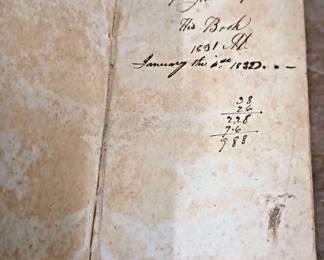 His Book
1831
January the 1832
38
26
228
76
988